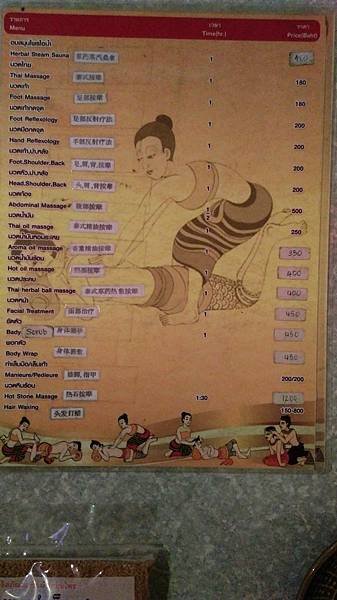 รายการ เวลา ราคา
Menu Time(hr.) Price(Baht)
อบสมุนไพรไอน้ำ
Herbal Steam Sauna 草药蒸汽桑拿
นวดไทย
Thai Massage 泰式按摩 1 180
นวดเท้า
Foot Massage 足部按摩 1 180
นวดเท้ากดจุด
Foot Reflexology 足部反射疗法 1 200
นวดมือกดจุด
Hand Reflexology 手部反射疗法 1
นวดเท้า,บ่า,หลัง
Foot,Shoulder,Back 足,肩,背,按摩 1 200
นวดหัว,บ่า,หลัง
Head,Shoulder,Back 头,肩,背按摩 1 200
นวดท้อง
Abdominal Massage 腹部按摩 1 500
นวดน้ำมัน
Thai oil massage 泰式精油按摩 1 250
นวดน้ำมันหอมระเหย
Aroma oil massage 香薰精油按摩 350
นวดน้ำมันร้อน
Hot oil massage 热油按摩 1 400
นวดประคบ
Thai herbal ball massage 泰式草药热敷按摩 1 400
นวดหน้า
Facial Treatment 面部治疗 1 450
ขัดตัว
Body Scrub 身体磨砂 1 450
พอกตัว
Body Wrap 身体裹敷 450
ทำเล็บมือเล็บเท้า
Manicure/Pedicure 修脚,指甲 200/200
นวดหินร้อน
Hot Stone Massage 热石按摩 1:30 1200
Hair Waxing 头发打蜡 150-800